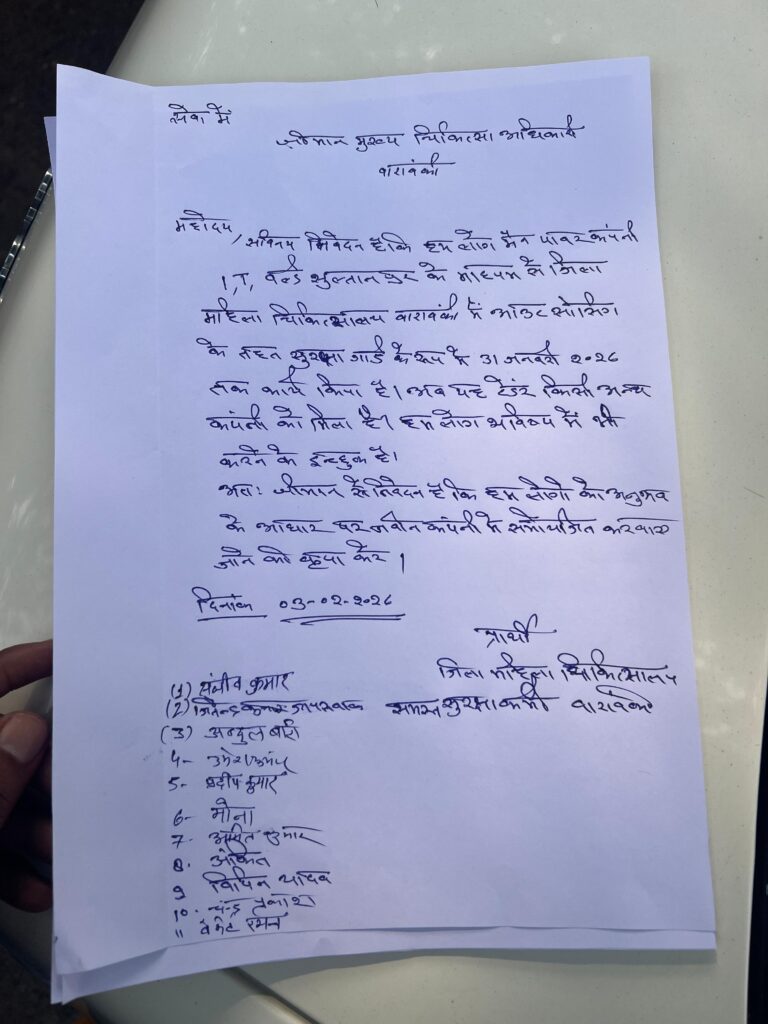 सेवा में
श्रीमान मुख्य चिकित्सा अधिकारी
बाराबंकी
महोदय,
सविनय निवेदन है कि हम लोग मैन पावर कंपनी
I.T. वर्ल्ड सुल्तानपुर के माध्यम से जिला
महिला चिकित्सालय बाराबंकी में आउट सोर्सिंग
के तहत सुरक्षा गार्ड के रूप में 31 जनवरी २०२६
तक कार्य किया है। अब यह टेंडर किसी अन्य
कंपनी को मिला है। हम लोग भविष्य में भी
करने के इच्छुक है।
अतः श्रीमान से निवेदन है कि हम लोगो को अनुभव
के आधार पर नवीन कंपनी में समायोजित करवाए
जाने की कृपा करें।
दिनांक ०3-०२-२०२६
प्रार्थी
जिला महिला चिकित्सालय
समस्त सुरक्षाकर्मी बाराबंकी
(1) संजीव कुमार
(2) जितेन्द्र कुमार जायसवाल
(3) अब्दुल बारी
4-
5- प्रदीप कुमार
6- मोना
7- अमित कुमार
8. अंकित
9 विपिन यादव
10. चन्द्र प्रकाश
11